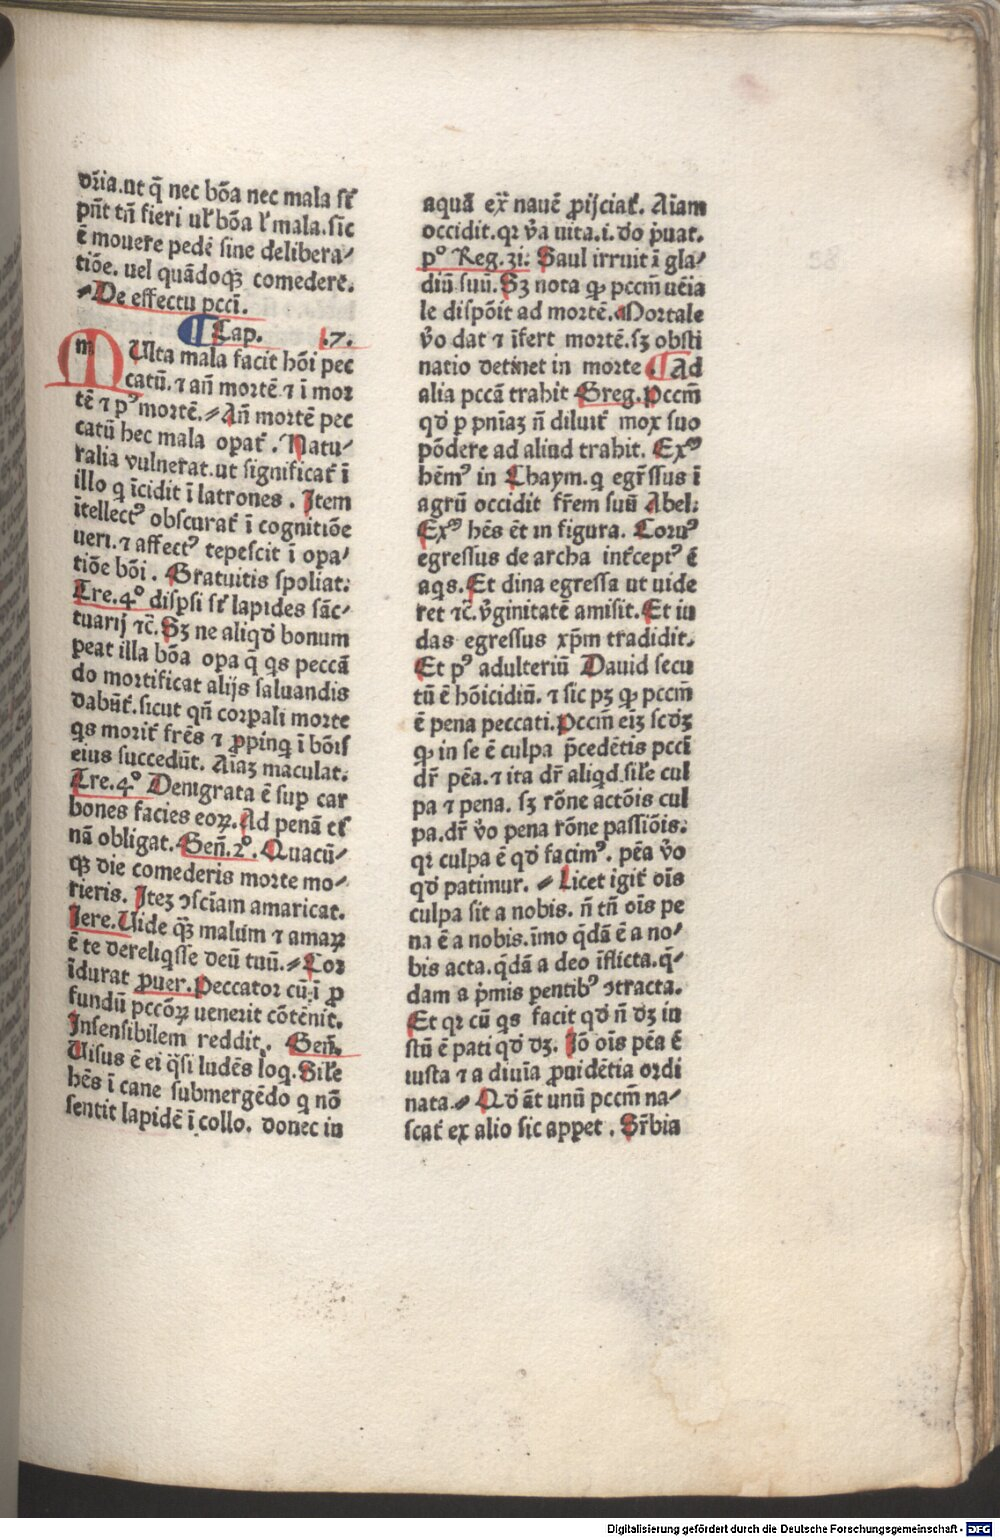 dr̄ia.ut q̄ nec bōa nec mala sūt
pn̄t tn̄ fieri ul' bōa l' mala.sic̄
ē mouere pedē sine delibera⸗
tiōe. uel quādoqꝫ comederē.
⸗De effectu pcc̄i.
¶ Cap. .17.
m Ulta mala facit hōi pec
catū. ⁊ an̄ mortē ⁊ ī mor
tē ⁊ pꝰ mortē.⸗An̄ mortē pec
catū hec mala opat᷑. Natu⸗
ralia vulnerat.ut significat᷑ ī
illo q īcidit ī latrones. Item
ītellectꝰ obscurat᷑ ī cognitiōe
ueri.⁊ affectꝰ tepescit ī opa⸗
tiōe bōi. Gratuitis spoliat:
Tre.4° dispsi sūt lapides sāc⸗
tuarij ⁊c̄. Sꝫ ne aliqd' bonum
peat illa bōa opa q̄ qs peccā
do mortificat alijs saluandis
dabūt᷑.sicut qn̄ corpali morte
qs morit᷑ frēs ⁊ ꝓpinq ī bōis
eius succedūt. Aiaꝫ maculat.
Tre.4° Denigrata ē sup car
bones facies eoꝝ. Ad penā et᷑
nā obligat. Gen̄.2°. Quacū⸗
qꝫ die comederis morte mo⸗
rieris. Iteꝫ ↄscīam amaricat.
Jere. Uide qꝫ malum ⁊ amaꝝ
ē te dereliq̄sse deū tuū.⸗Cor
īdurat ꝓuer. Peccator cū ī ꝓ
fundū pccōꝝ uenerit cōtēnit.
Insensibilem reddit. Gen̄.
Uisus ē ei q̄si ludēs loq. Sil'e
hēs ī cane submergēdo q nō
sentit lapidē ī collo. donec in
aquā ex̄ nauē ꝓijciat᷑. Aiam
occidit.qꝛ v̄a uita.i.do p̄uat.
p° Reg.31. Saul irruit ī gla⸗
diū suū. Sꝫ nota ꝙ pccm̄ uēia
le dispōit ad mortē. Mortale
v̄o dat ⁊ īfert mortē.sꝫ obsti
natio detinet in morte. ¶ Ad
alia pccā trahit Greg. Pccm̄
qd' p pnīaꝫ n̄ diluit᷑ mox suo
pōdere ad aliud trahit. Exꝰ
hēmꝰ in Chaym.q egr̄ssus ī
agrū occidit fr̄em suū Abel:
Exꝰ hēs ēt in figura. Coruꝰ
egressus de archa int̄ceptꝰ ē
aqs. Et dina egressa ut uide
ret ⁊c̄. v̄ginitatē amisit. Et iu
das egressus xp̄m tradidit.
Et pꝰ adulteriū Dauid secu
tū ē hōicidiū. ⁊ sic pꝫ ꝙ pccm̄
ē pena peccati. Pccm̄ eīꝫ scd'ꝫ
ꝙ in se ē culpa p̄cedētis pcci
dr̄ pēa.⁊ ita dr̄ aliqd sil'e cul
pa ⁊ pena. sꝫ rōne actōis cul
pa.dr̄ v̄o pena rōne passiōis:
qꝛ culpa ē qd' facimꝰ. pēa v̄o
qd' patimur. ⸗Licet igit᷑ oīs
culpa sit a nobis. n̄ tn̄ oīs pe
na ē a nobis.īmo q̄dā ē a no⸗
bis acta.q̄dā a deo īflicta.q̄⸗
dam a p̄mis pentibꝰ ↄtracta.
Et qꝛ cū qs facit qd' n̄ dꝫ in
stū ē pati qd' dꝫ. Iō oīs pēa ē
iusta ⁊ a diuīa ꝓuidētia ordi
nata.⸗Qd' āt unū pccm̄ na⸗
scat᷑ ex alio sic appet. Sr̄bia
Digitalisierung gefördert durch die Deutsche Forschungsgemeinschaft - DFG